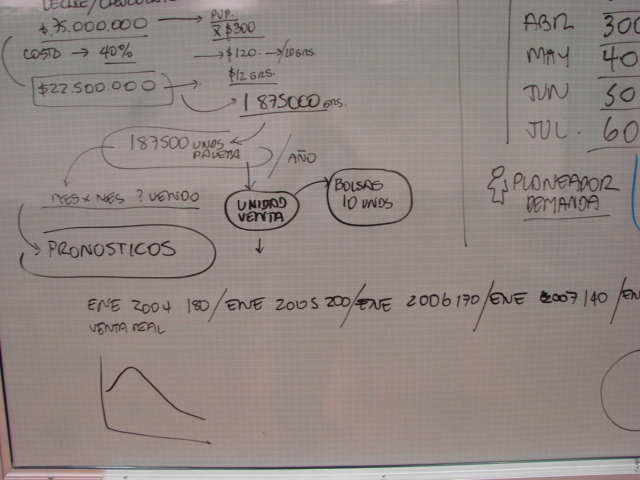 LECHE/CHOCOLATE
$75.000.000 → P.V.P. X $300
COSTO → 40% → $120. → /10 GRS.
$22.500.000 → $12 GRS.
1875000 GRS.
187500 UNDS PALETA
/AÑO
MES x MES ? VENDO
UNIDAD VENTA
BOLSAS 10 UNDS
PRONOSTICOS
ENE 2004 180/ENE 2005 200/ENE 2006 170/ENE 2007 140/EN
VENTA REAL
ABR 300
MAY 40
JUN 50
JUL. 60
PLANEADOR
DEMANDA